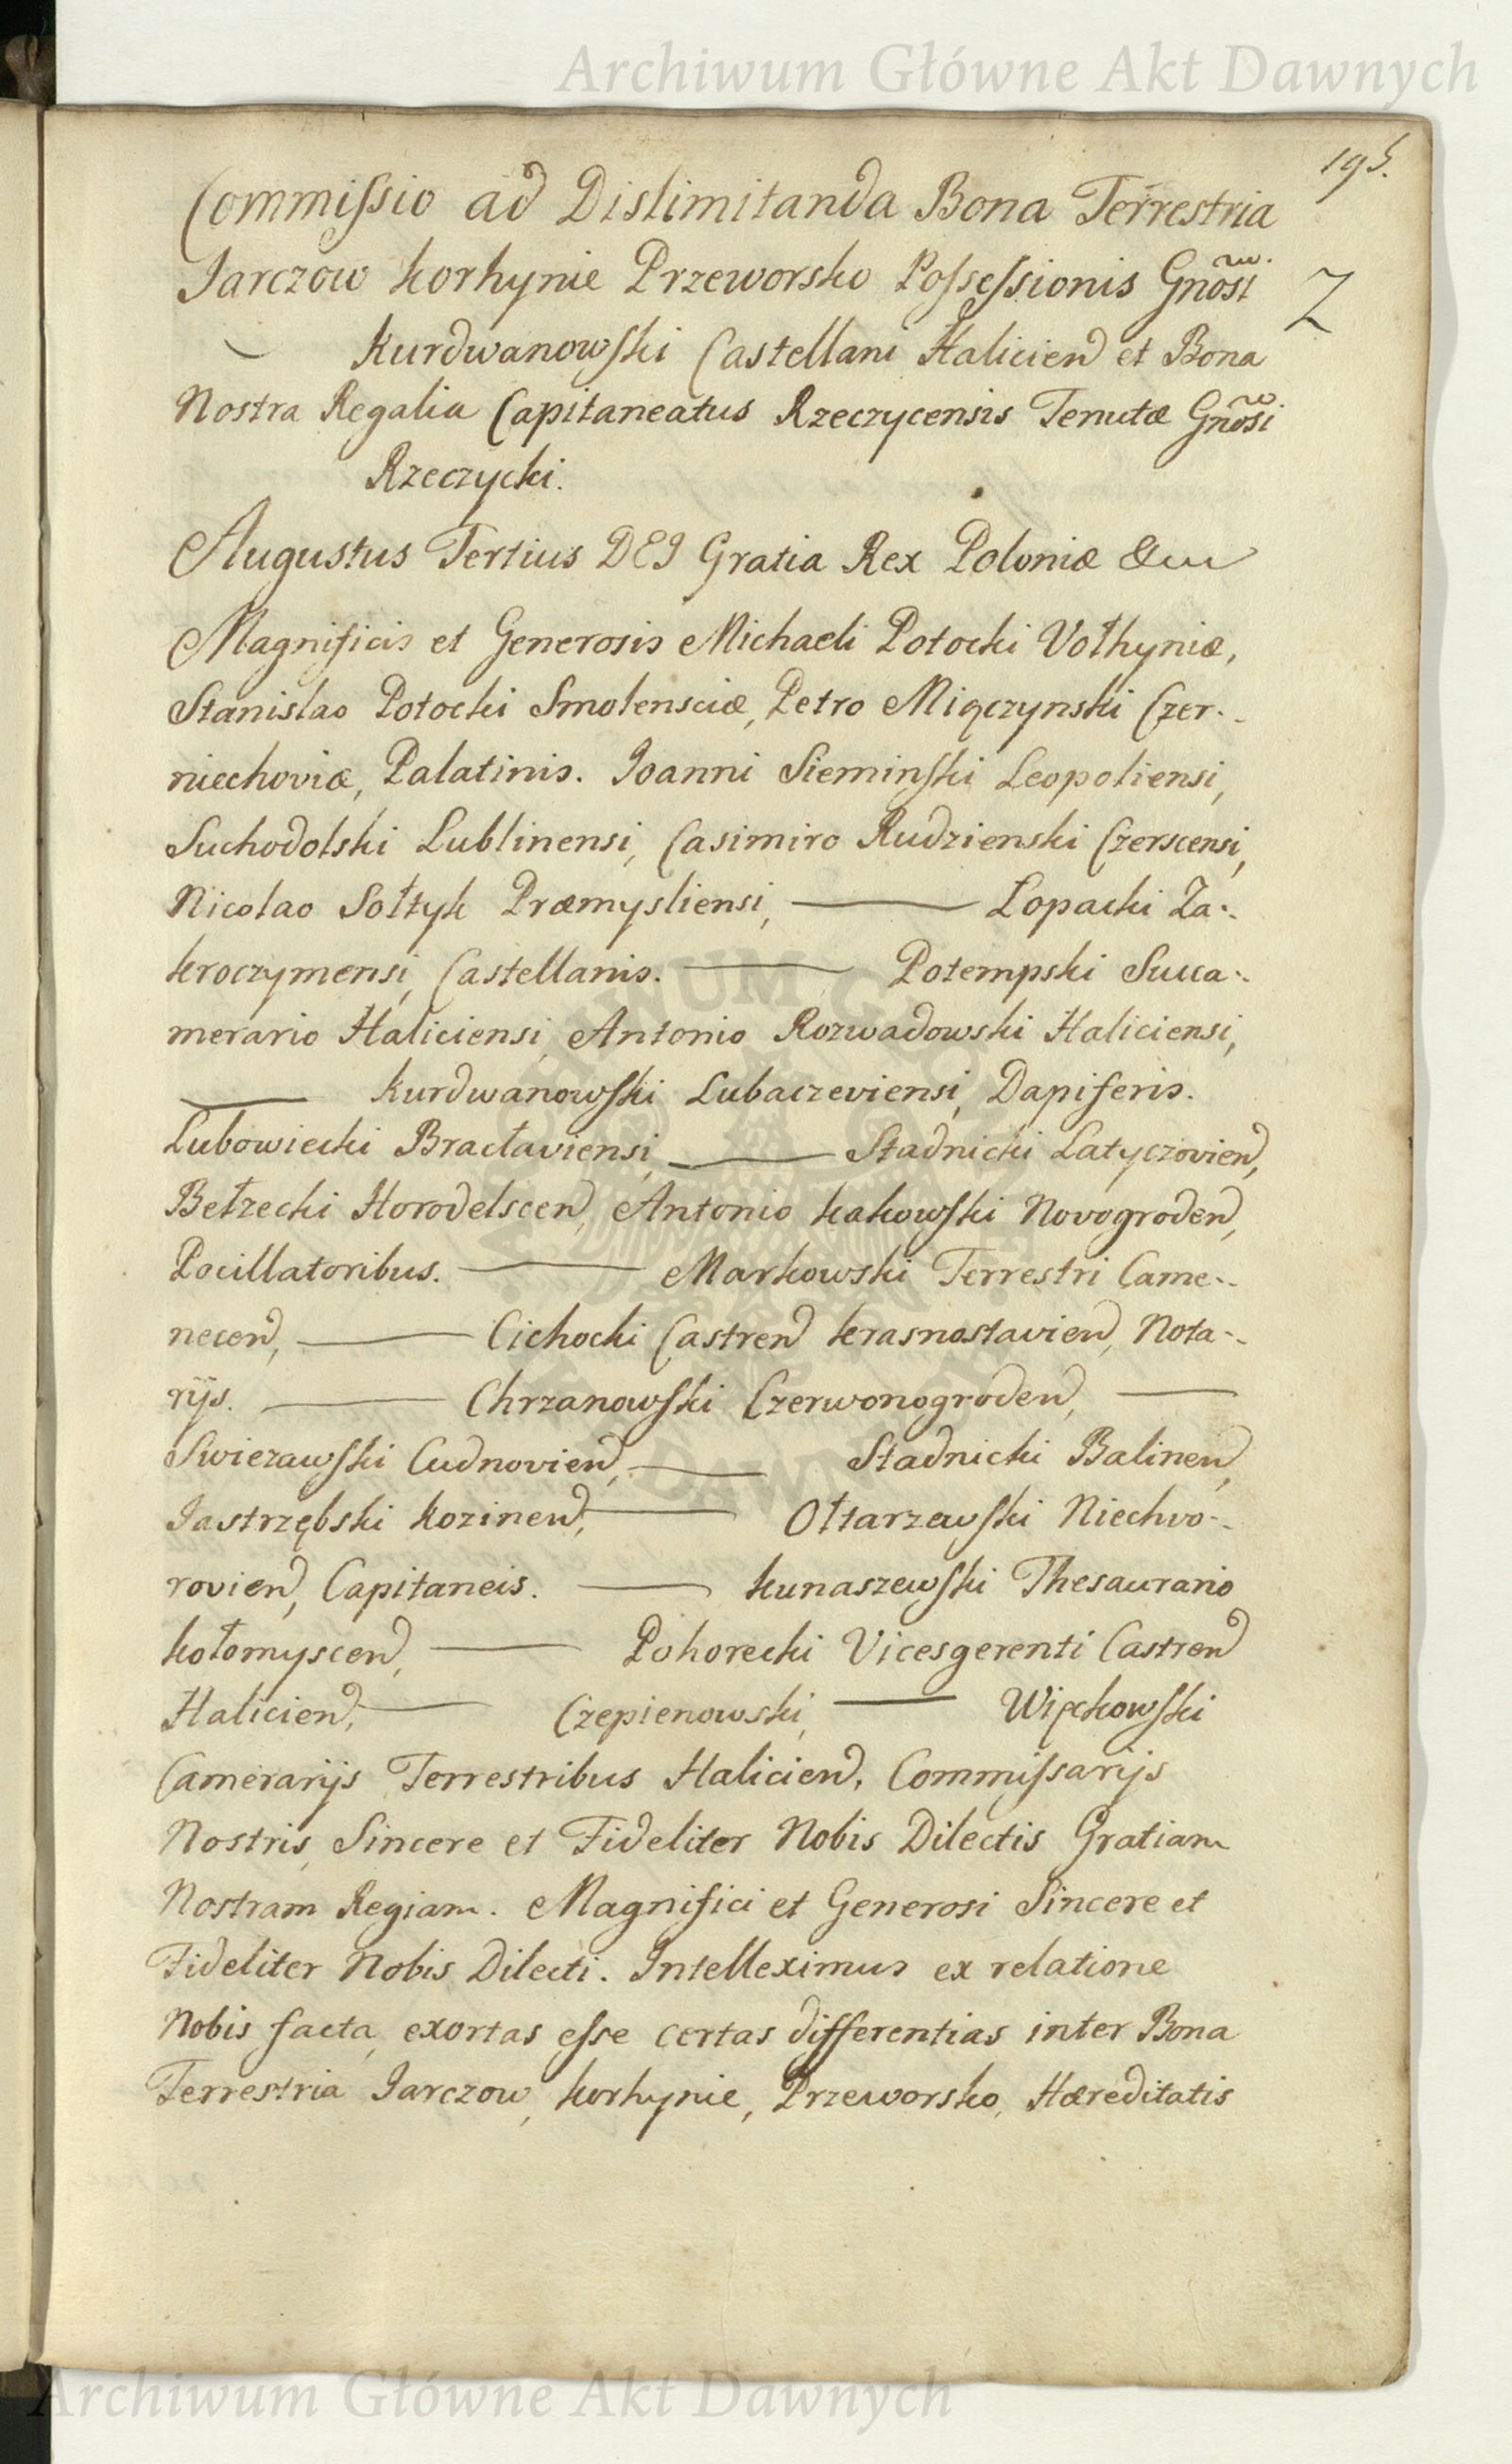 Archiwum Główne Akt Dawnych
195.
Commissio ad Dislimitanda Bona Terrestria
Jarczow Korhynie Przeworsko Possessionis Gnosi
Z
— Kurdwanowski Castellani Halicien et Bona
Nostra Regalia Capitaneatus Rzeczycensis Tenutæ Gnosi
Rzeczycki.
Augustus Tertius DEI Gratia Rex Poloniæ &
Magnificis et Generosis Michaeli Potocki Vołhyniæ,
Stanislao Potocki Smolensciæ, Petro Miączynski Czer-
niechoviæ, Palatinis. Joanni Sieminski Leopoliensi,
Suchodolski Lublinensi, Casimiro Rudzienski Czerscensi,
Nicolao Sołtyk Præmysliensi, — Lopacki Za-
kroczymensi, Castellanis. — Potempski Succa-
merario Haliciensi, Antonio Rozwadowski Haliciensi,
— Kurdwanowski Lubaczeviensi, Dapiferis.
Lubowiecki Bracłaviensi, — Stadnicki Latyczovien,
Bełzecki Horodelscen, Antonio Kakowski Novogroden,
Pocillatoribus. — Markowski Terrestri Came-
necen, — Cichocki Castren Krasnostavien, Nota-
rijs. — Chrzanowski Czerwonogroden, —
Swiezawski Cudnovien, — Stadnicki Balinen,
Jastrzębski Kozinen, — Ołtarzewski Niechwo-
rovien, Capitaneis. — Kunaszewski Thesaurario
Kołomyscen, — Pohorecki Vicesgerenti Castren
Halicien, — Czepienowski, — Więckowski
Camerarijs Terrestribus Halicien, Commissarijs
Nostris, Sincere et Fideliter Nobis Dilectis Gratiam
Nostram Regiam. Magnifici et Generosi Sincere et
Fideliter Nobis Dilecti. Intelleximus ex relatione
Nobis facta, exortas esse certas differentias inter Bona
Terrestria Jarczow, Korhynie, Przeworsko, Hæreditatis
Archiwum Główne Akt Dawnych